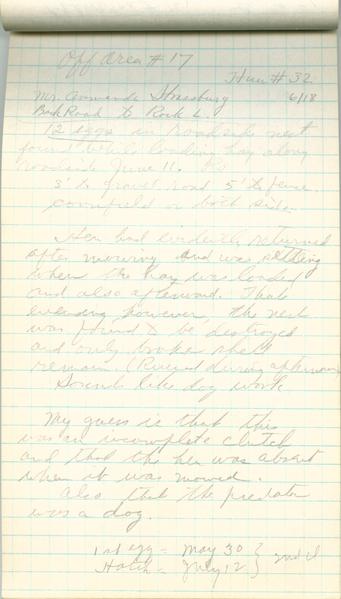 Off Area #17
Hen #32
Mr. Armando Strassburg 6/18
Back Road to Rock L.
12 eggs in roadside nest
found while loading hay along
roadside June 11.
3' to gravel road 5' to fence.
cornfield on both sides.
Hen had evidently returned
after mowing and was setting
when the hay was loaded
and also afterward. That
evening however, the nest
was found to be destroyed
and only broken shell
remain. (Ruined during afternoon)
Sounds like dog work
My guess is that this
was an incomplete clutch
and that the hen was absent
when it was mowed.
Also that the predator
was a dog.
1st egg = May 30 } 2nd cl
Hatch = July 12